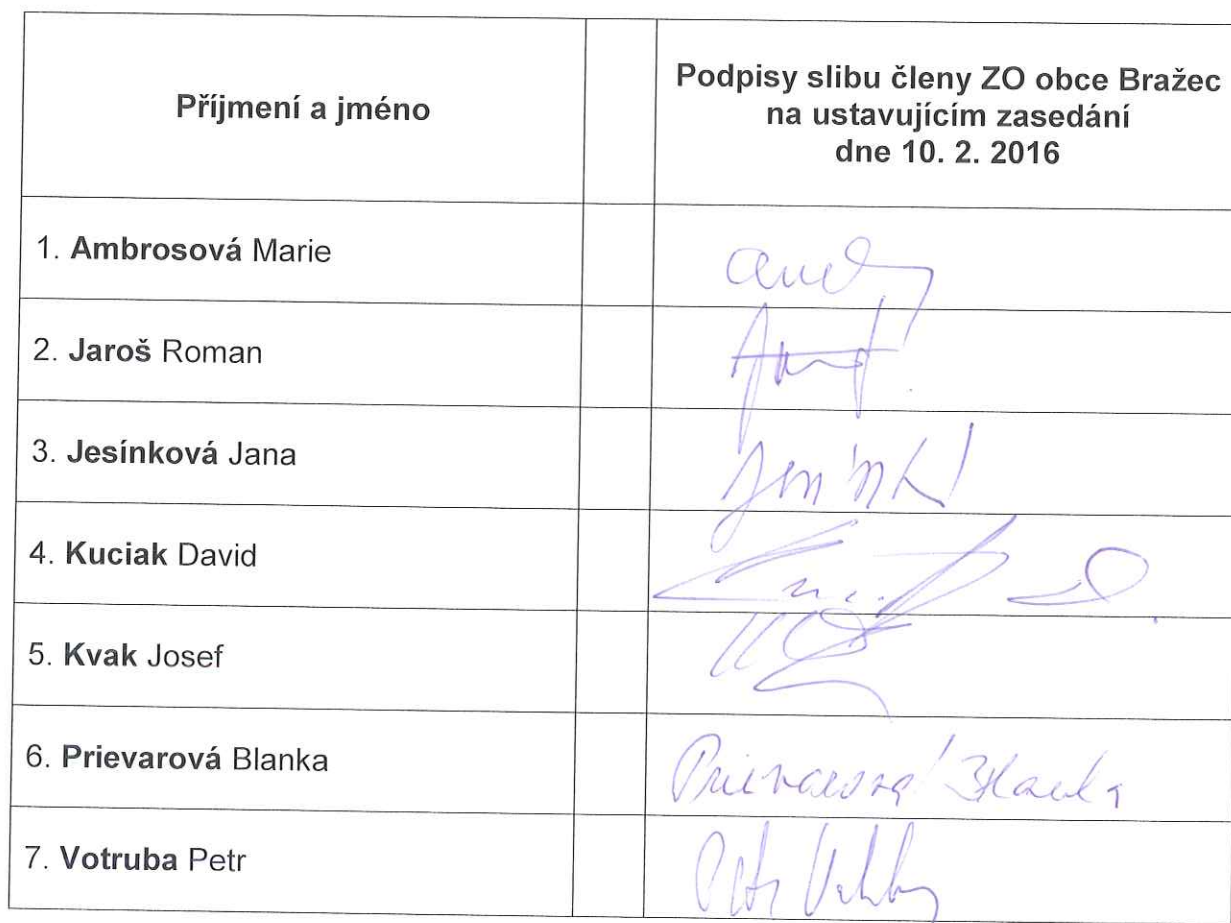 Příjmení a jméno
Podpisy slibu členy ZO obce Bražec
na ustavujícím zasedání
dne 10. 2. 2016
1. Ambrosová Marie
2. Jaroš Roman
3. Jesínková Jana
4. Kuciak David
5. Kvak Josef
6. Prievarová Blanka
Prievarová Blanka
7. Votruba Petr